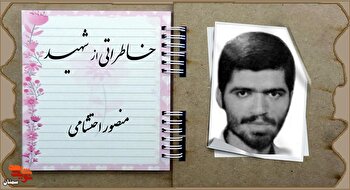 خاطراتی از شهید
منصور احتشامی
سمنان